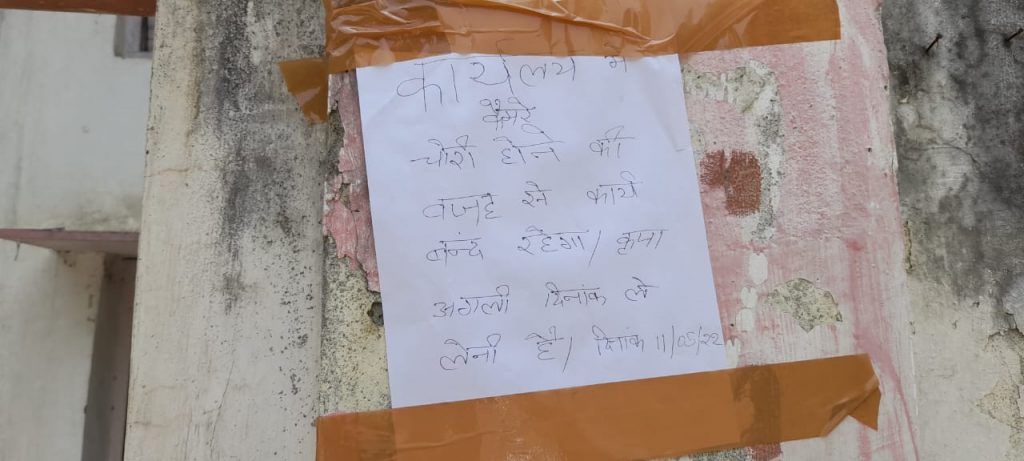 कार्यलय में
कैमरे
चोरी होने की
वजह से कार्य
बन्द रहेगा/ कृपा
अगली दिनांक ले
लेनी है/ दिनांक 11/05/22